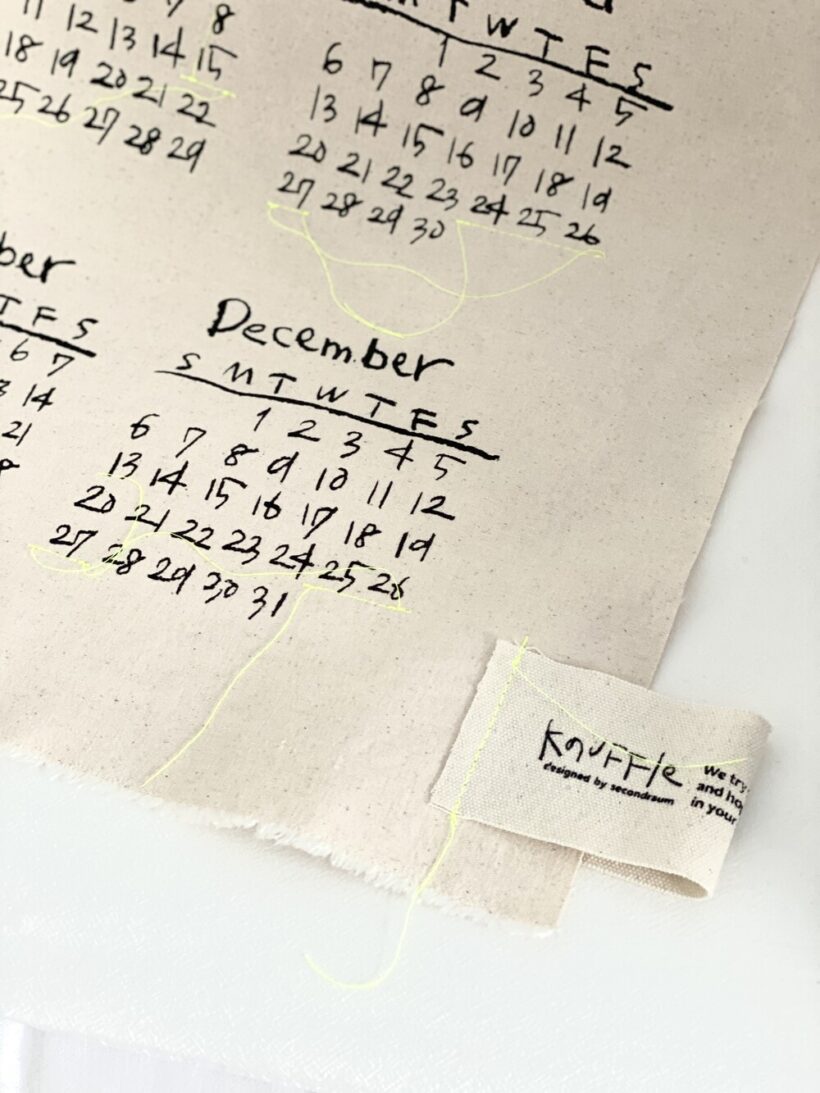 8
11 12 13 14 15
18 19 20 21 22
25 26 27 28 29
T W T F S
1 2 3 4 5
6 7 8 9 10 11 12
13 14 15 16 17 18 19
20 21 22 23 24 25 26
27 28 29 30
ber
T F S
6 7
14
21
December
S M T W T F S
1 2 3 4 5
6 7 8 9 10 11 12
13 14 15 16 17 18 19
20 21 22 23 24 25 26
27 28 29 30 31
Knuffle
designed by secondraum
We try
and ho
in your